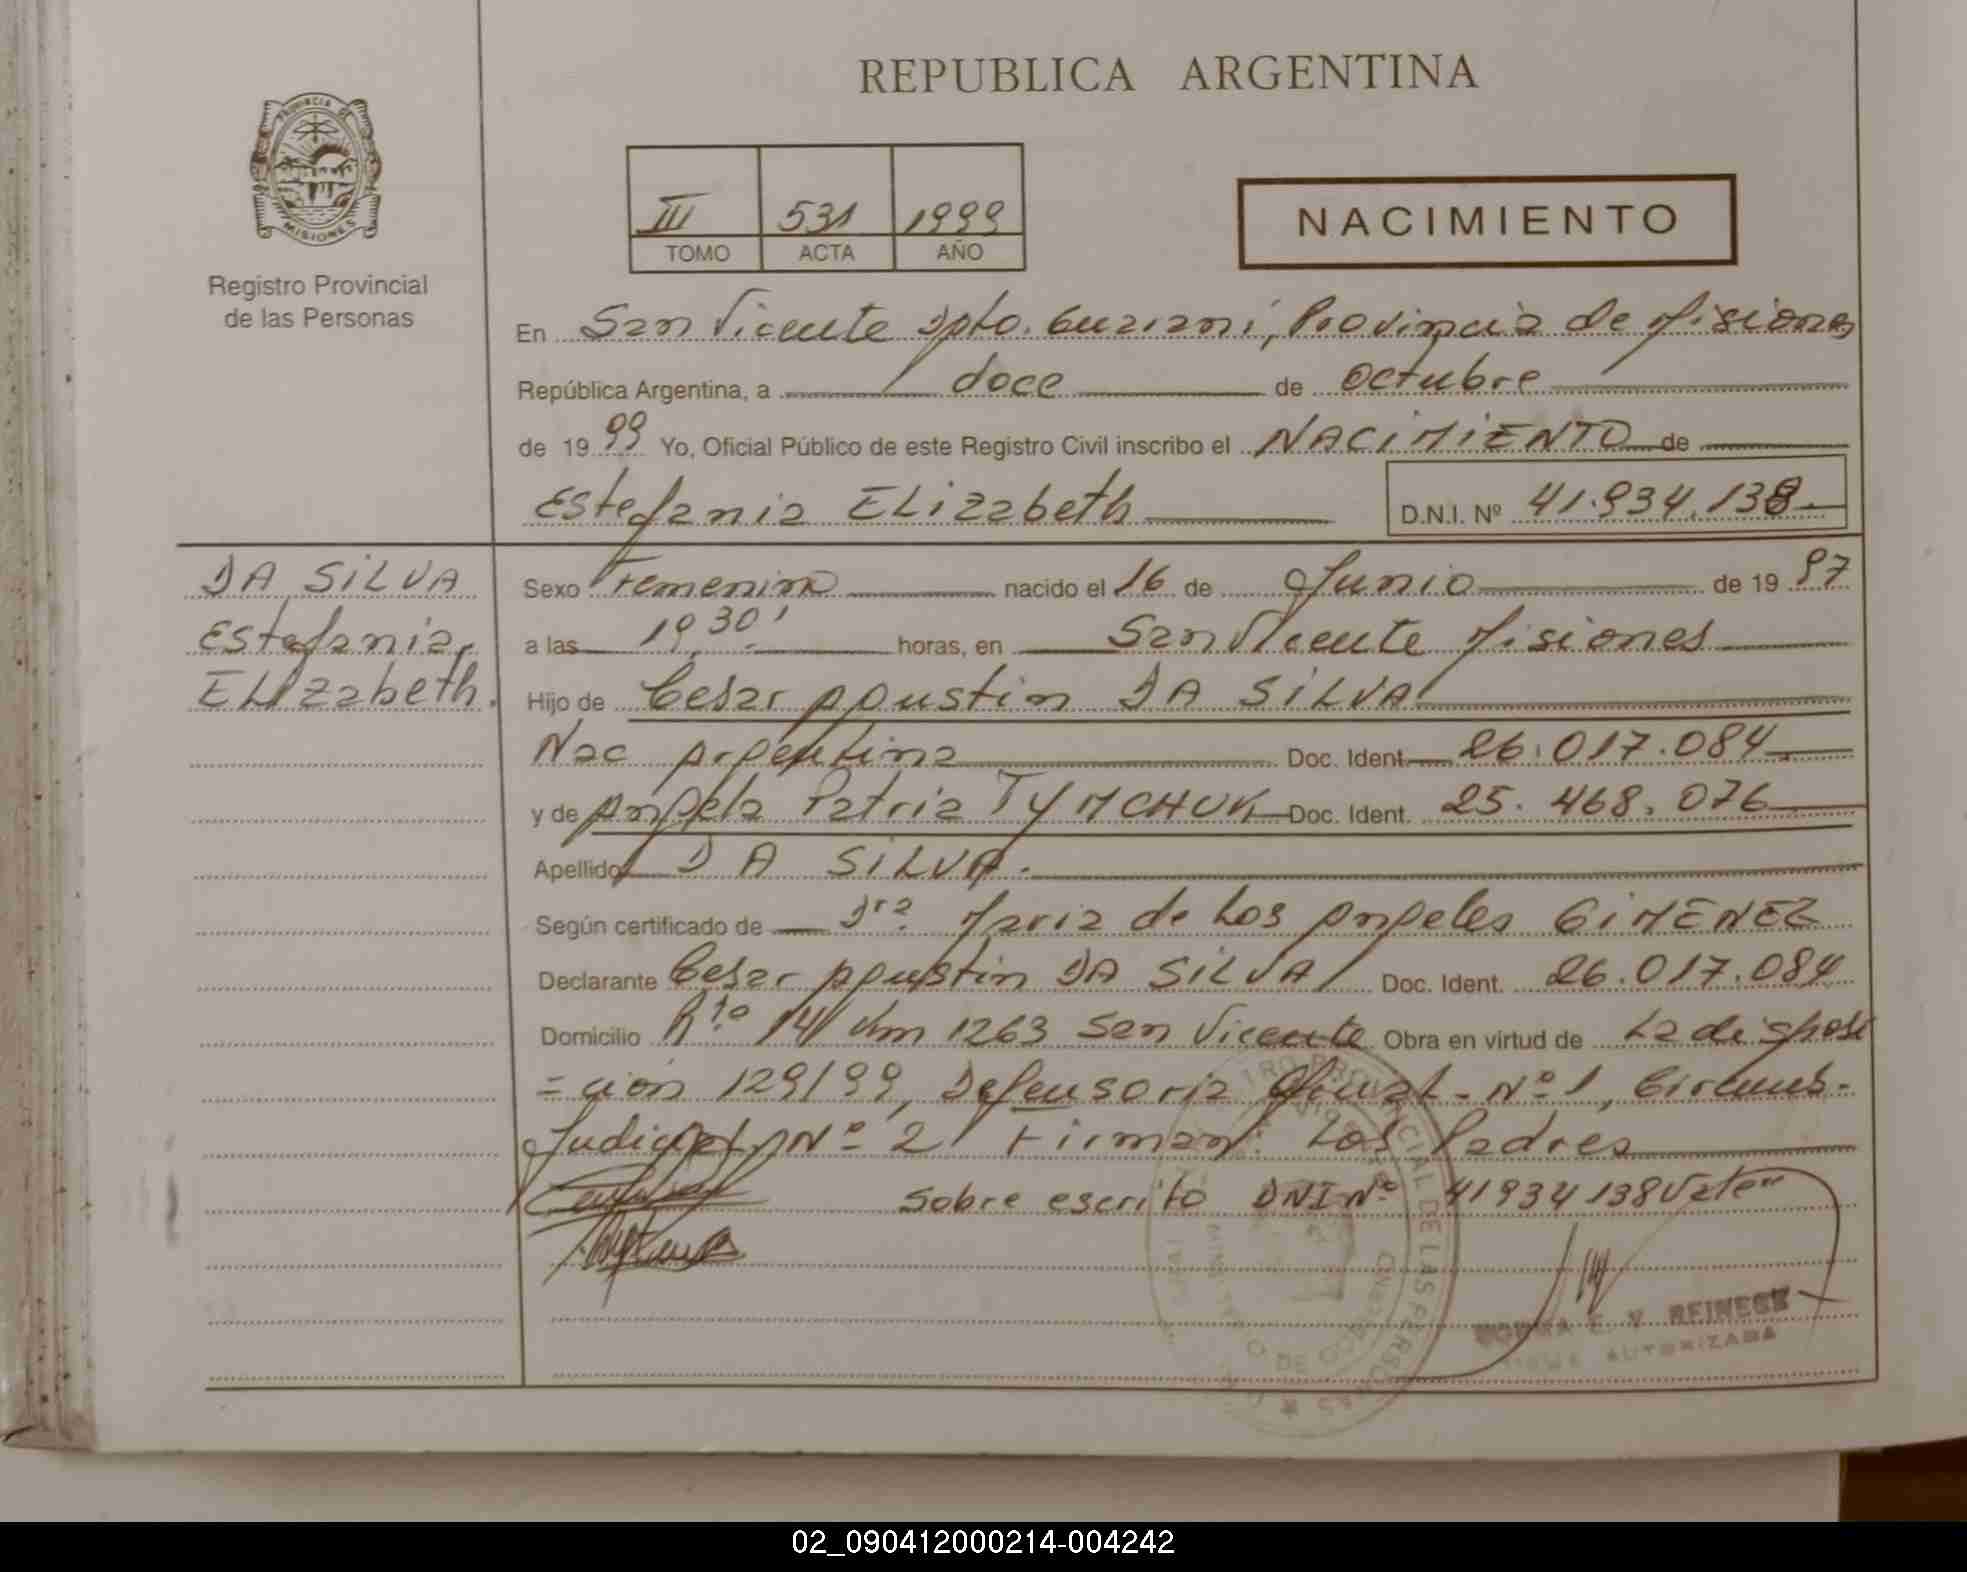 REPUBLICA ARGENTINA
PROVINCIA DE
MISIONES
Registro Provincial
de las Personas
III 531 1999
TOMO ACTA AÑO
NACIMIENTO
En San Vicente Dpto. Guarani, Provincia de Misiones
República Argentina, a doce de Octubre
de 1999 Yo, Oficial Público de este Registro Civil inscribo el NACIMIENTO de
Estefania ELizabeth D.N.I. Nº 41.934.138
DA SILVA
Estefania
ELizabeth.
Sexo Femenino nacido el 16 de Junio de 1997
a las 19,30' horas, en San Vicente Misiones
Hijo de Cesar Agustin DA SILVA
Nac Argentina Doc. Ident. 26.017.084
y de Angela Patria TYMCHUK Doc. Ident. 25.468.076
Apellido DA SILVA.
Según certificado de Dra Maria de Los Angeles GIMENEZ
Declarante Cesar Agustin DA SILVA Doc. Ident. 26.017.084
Domicilio Rta 14 Km 1263 San Vicente Obra en virtud de La disposi
=cion 129/99, Defensoria Oficial - Nº 1, Circuns-
Judicial Nº 2 Firman: Los Padres
Sobre escrito DNI Nº 41934138 Valen
REGISTRO PROVINCIAL DE LAS PERSONAS
MINISTERIO DE GOBIERNO
NORMA E. V. REINECK
AUTORIZADA
02_090412000214-004242